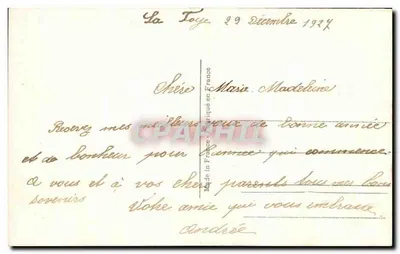 La Foye 29 Décembre 1927
Chère Marie Madeleine
Recevez mes meilleurs vœux de bonne année
et de bonheur pour l'année qui commence
à vous et à vos chers parents tous nos bons
souvenirs
Votre amie qui vous embrasse
Andrée
Made in France - Fabriqué en France
CPAPHIL